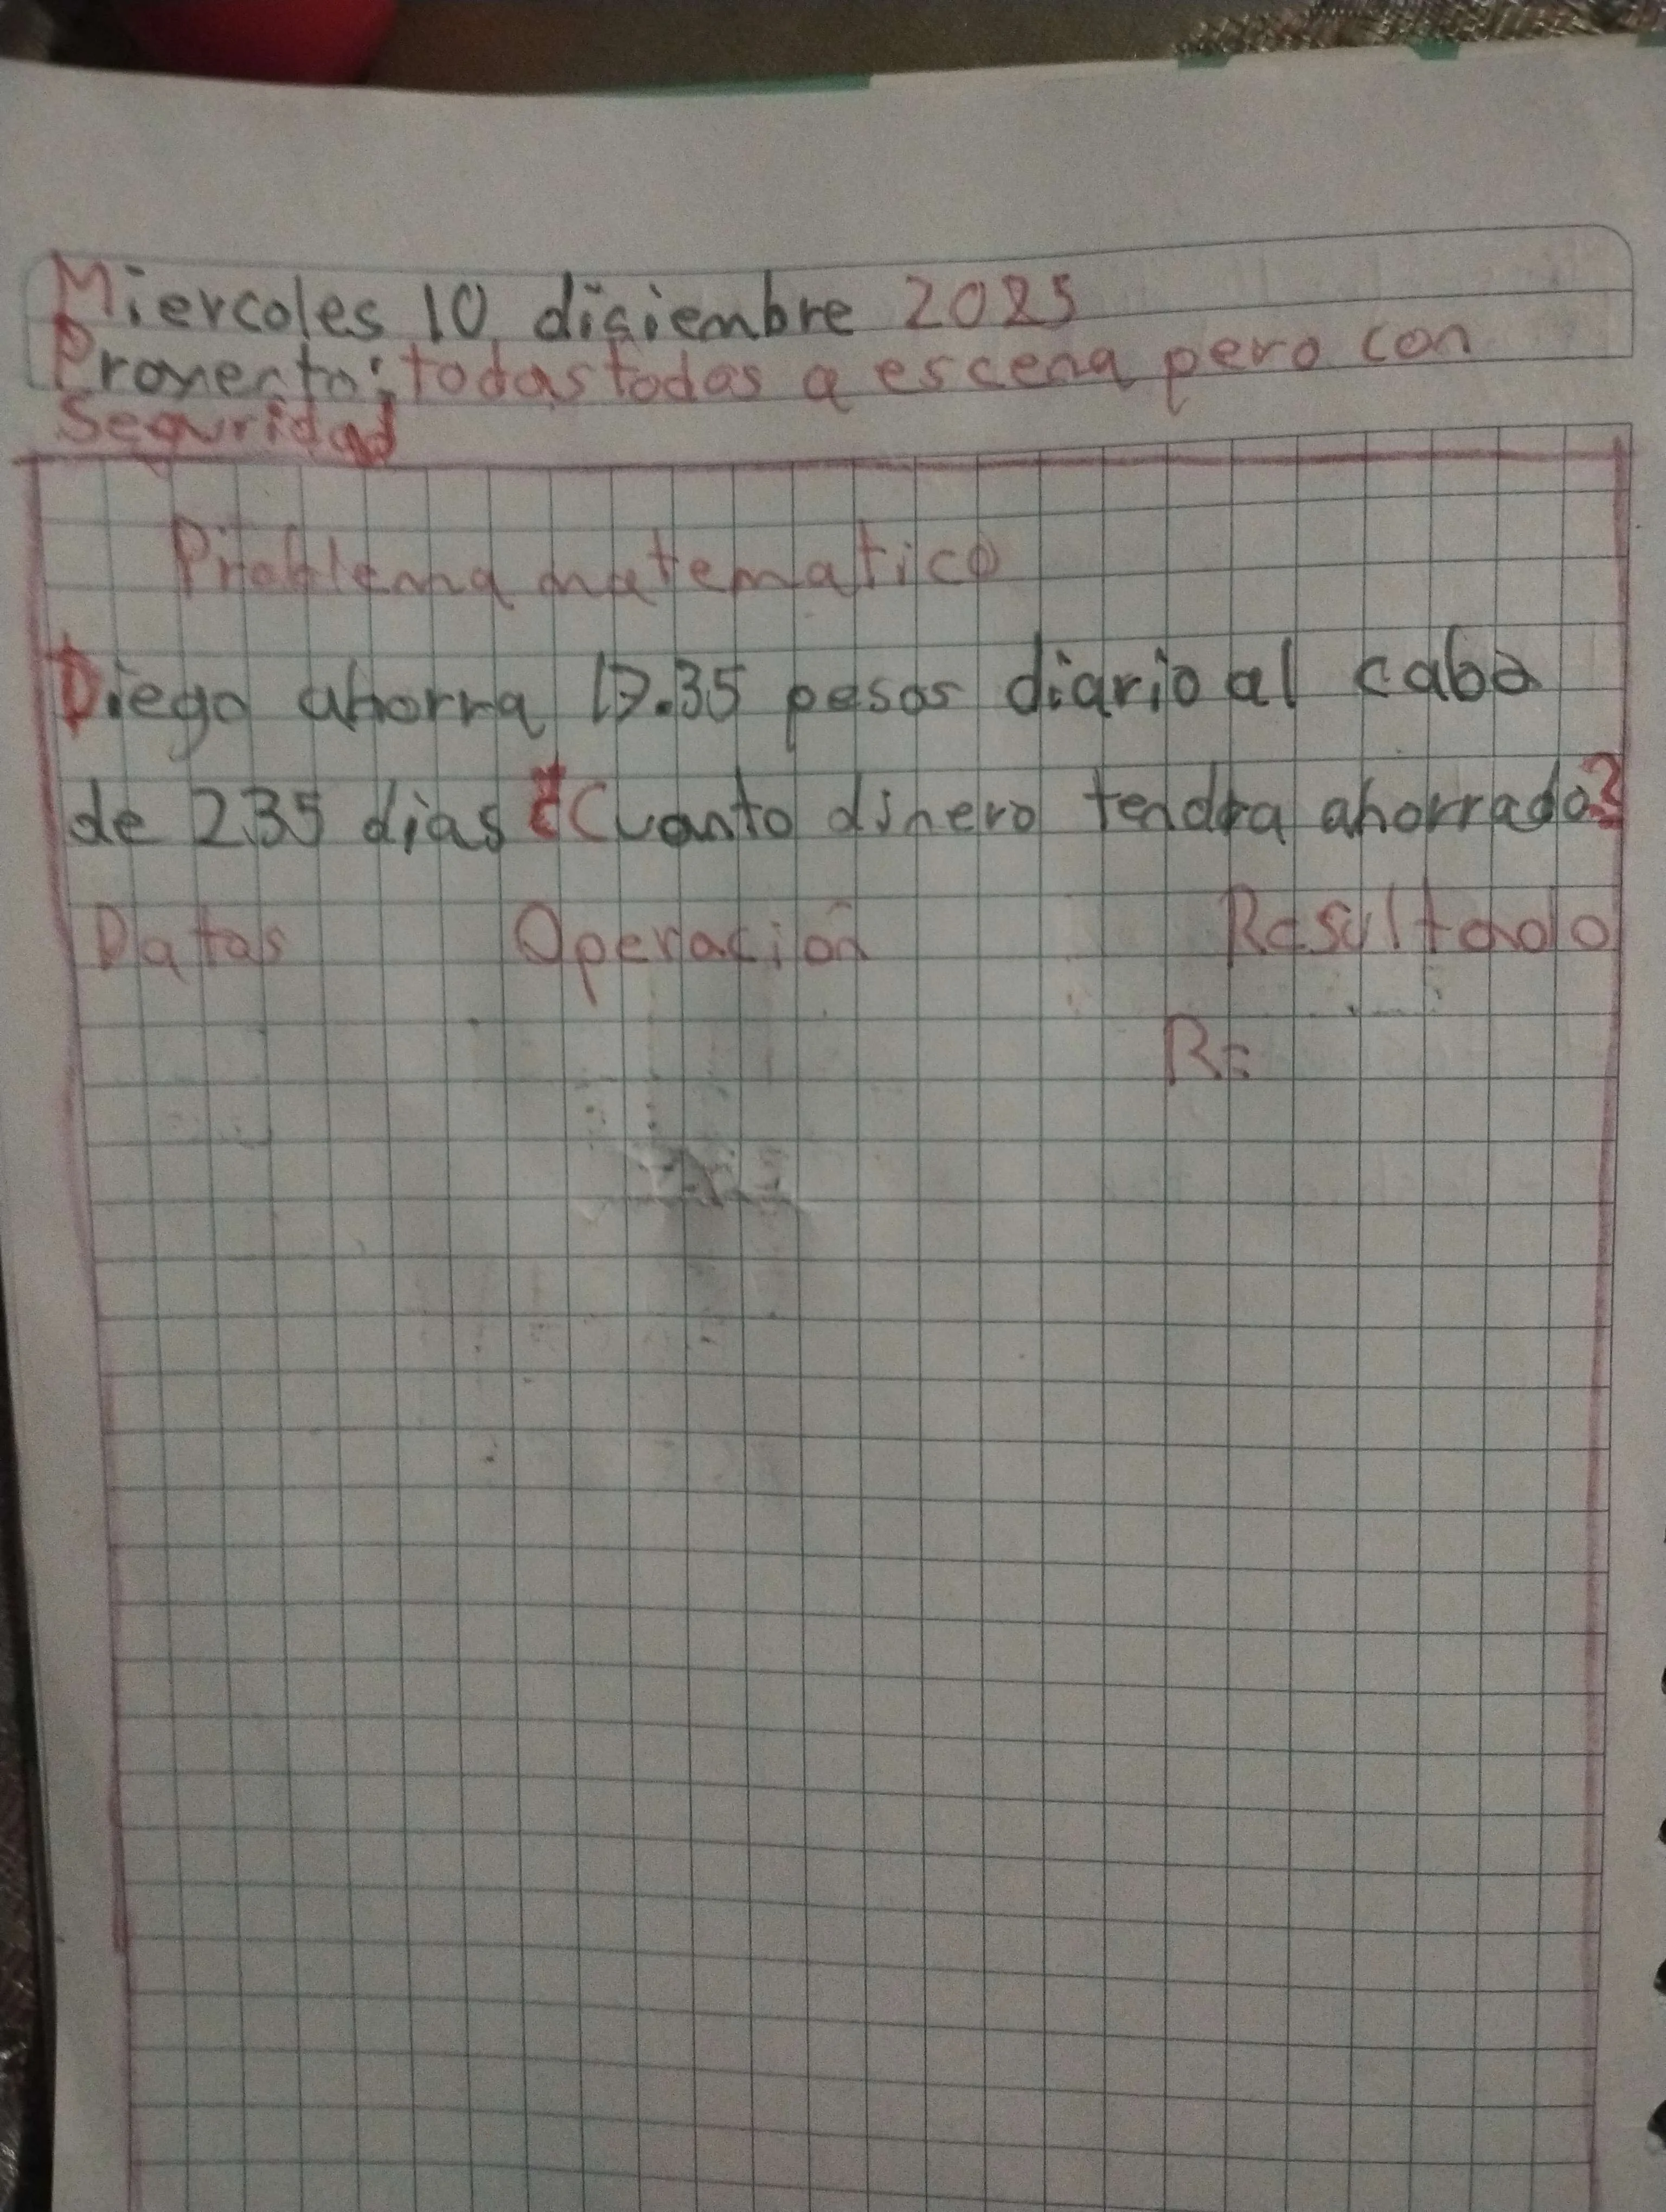 Miercoles 10 disiembre 2025
Proyecto: todas todas a escena pero con
Seguridad
Problema matematico
Diego ahorra 17.35 pesos diario al cabo
de 235 dias ¿Cuanto dinero tendra ahorrado?
Datos Operación Resultado
R=